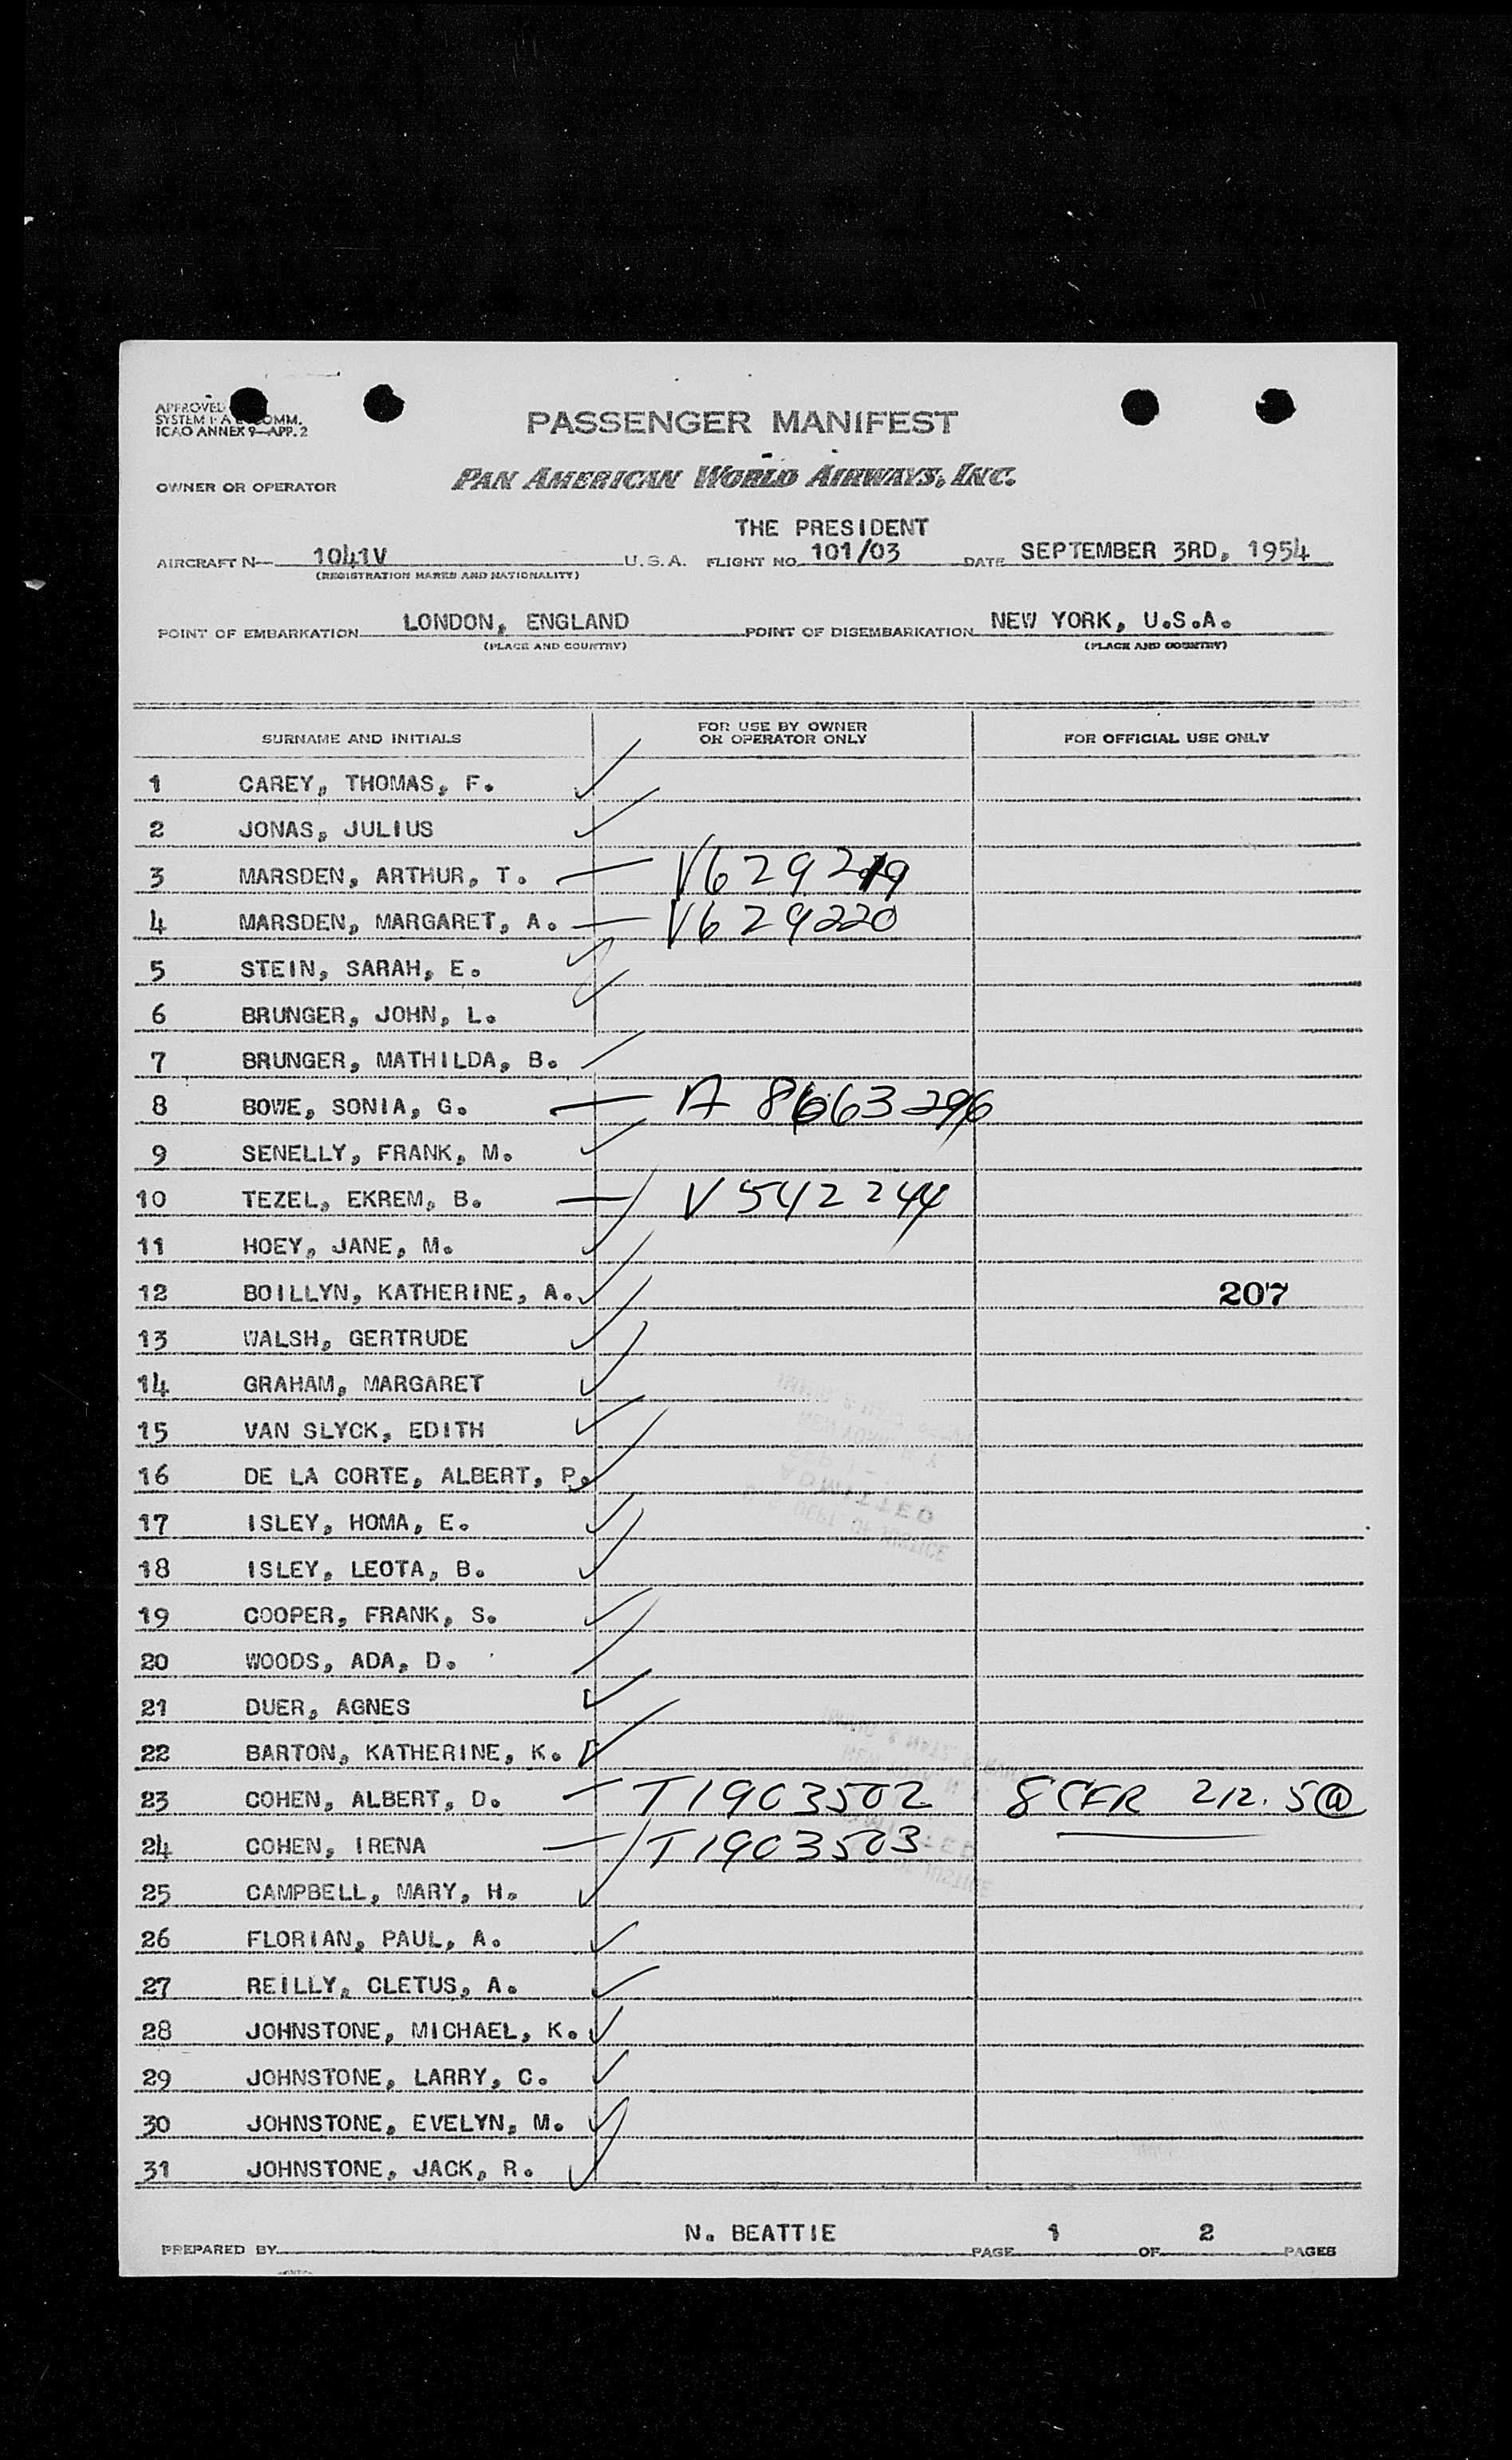 APPROVED
SYSTEM COMM.
ICAO ANNEX 9—APP. 2
PASSENGER MANIFEST
OWNER OR OPERATOR PAN AMERICAN WORLD AIRWAYS, INC.
THE PRESIDENT
AIRCRAFT N— 1041V U.S.A. FLIGHT NO. 101/03 DATE SEPTEMBER 3RD, 1954
(REGISTRATION MARKS AND NATIONALITY)
POINT OF EMBARKATION LONDON, ENGLAND POINT OF DISEMBARKATION NEW YORK, U.S.A.
(PLACE AND COUNTRY) (PLACE AND COUNTRY)
SURNAME AND INITIALS FOR USE BY OWNER OR OPERATOR ONLY FOR OFFICIAL USE ONLY
1 CAREY, THOMAS, F.
2 JONAS, JULIUS
3 MARSDEN, ARTHUR, T. — V629219
4 MARSDEN, MARGARET, A. — V629220
5 STEIN, SARAH, E.
6 BRUNGER, JOHN, L.
7 BRUNGER, MATHILDA, B.
8 BOWE, SONIA, G. — A 8663296
9 SENELLY, FRANK, M.
10 TEZEL, EKREM, B. — V 542244
11 HOEY, JANE, M.
12 BOILLYN, KATHERINE, A. 207
13 WALSH, GERTRUDE
14 GRAHAM, MARGARET
15 VAN SLYCK, EDITH
16 DE LA CORTE, ALBERT, P.
17 ISLEY, HOMA, E.
18 ISLEY, LEOTA, B.
19 COOPER, FRANK, S.
20 WOODS, ADA, D.
21 DUER, AGNES
22 BARTON, KATHERINE, K.
23 COHEN, ALBERT, D. — T1903502 8 CFR 212.5(a)
24 COHEN, IRENA — T1903503
25 CAMPBELL, MARY, H.
26 FLORIAN, PAUL, A.
27 REILLY, CLETUS, A.
28 JOHNSTONE, MICHAEL, K.
29 JOHNSTONE, LARRY, C.
30 JOHNSTONE, EVELYN, M.
31 JOHNSTONE, JACK, R.
PREPARED BY N. BEATTIE PAGE 1 OF 2 PAGES